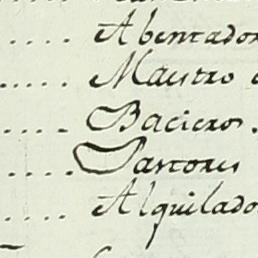 ..... Abentador
..... Maestro
..... Baciero.
..... Pastores
..... Alquilado